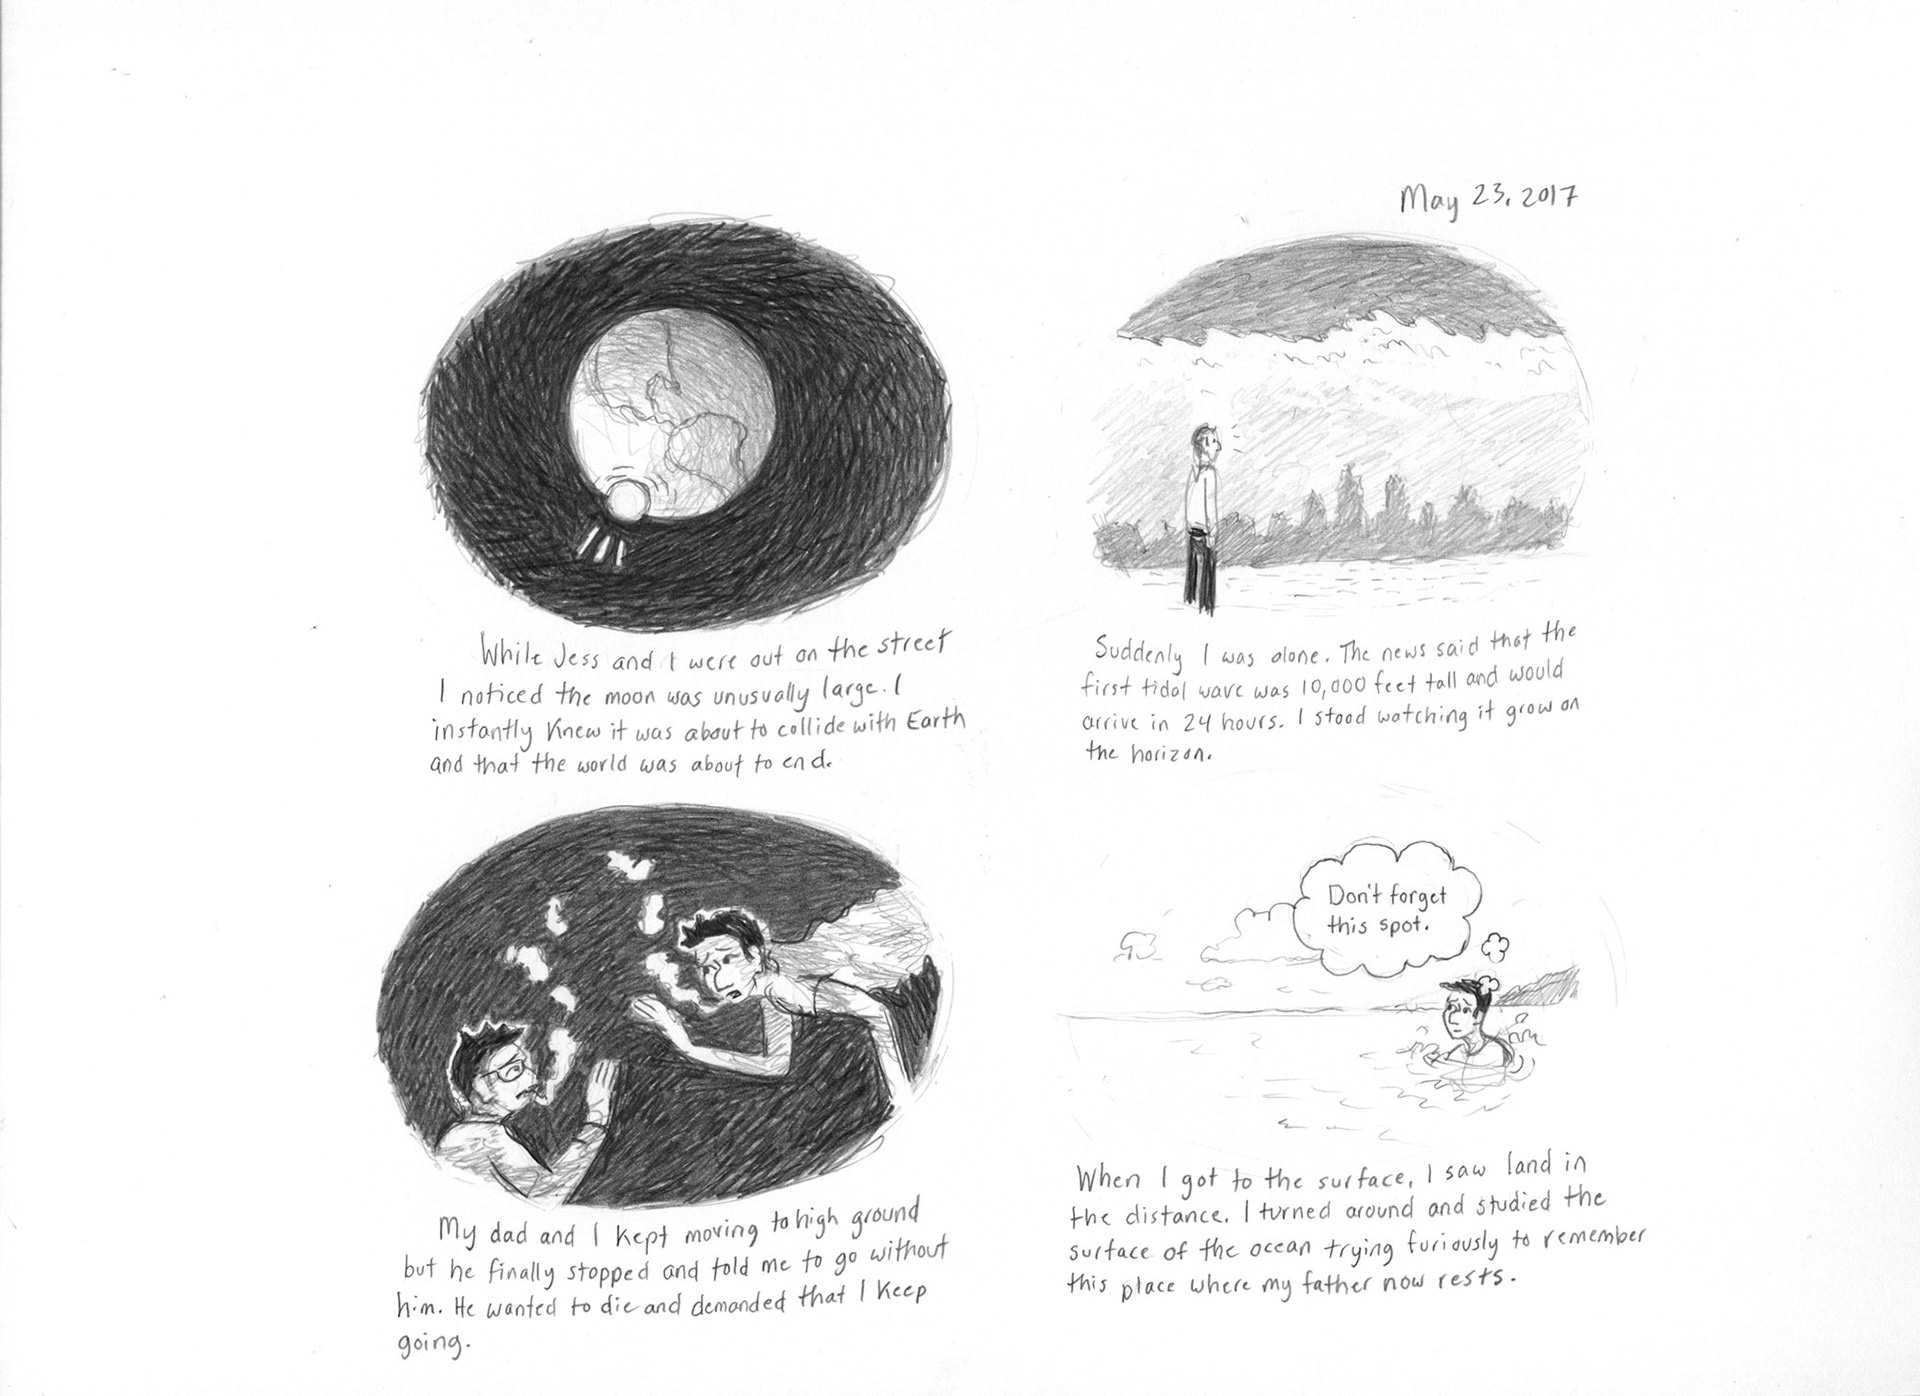 May 23, 2017
While Jess and I were out on the street
I noticed the moon was unusually large. I
instantly knew it was about to collide with Earth
and that the world was about to end.
Suddenly I was alone. The news said that the
first tidal wave was 10,000 feet tall and would
arrive in 24 hours. I stood watching it grow on
the horizon.
My dad and I kept moving to high ground
but he finally stopped and told me to go without
him. He wanted to die and demanded that I keep
going.
Don't forget
this spot.
When I got to the surface, I saw land in
the distance. I turned around and studied the
surface of the ocean trying furiously to remember
this place where my father now rests.